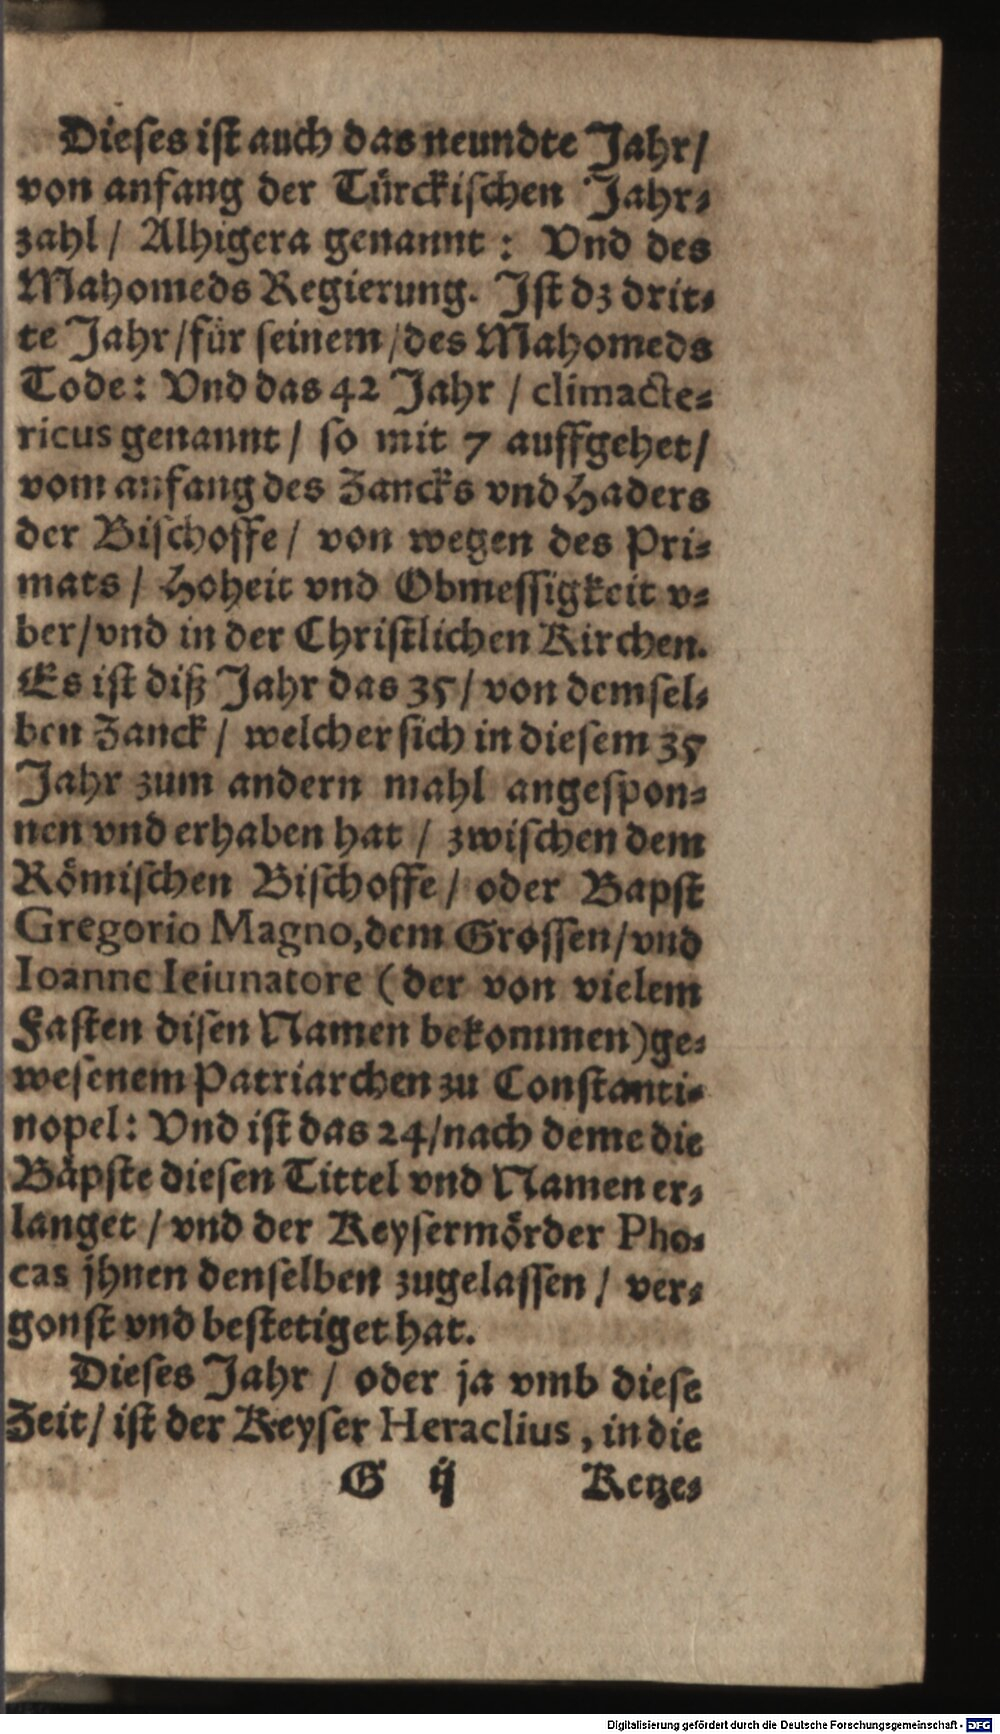 Dieses ist auch das neundte Jahr/
von anfang der Türckischen Jahr-
zahl/ Alhigera genannt: Vnd des
Mahomeds Regierung. Ist dz drit-
te Jahr/für seinem/des Mahomeds
Tode: Vnd das 42 Jahr / climacte-
ricus genannt/ so mit 7 auffgehet/
vom anfang des Zancks vnd Haders
der Bischoffe/ von wegen des Pri-
mats/ Hoheit vnd Obmessigkeit v-
ber/vnd in der Christlichen Kirchen.
Es ist diß Jahr das 35/ von demsel-
ben Zanck/ welcher sich in diesem 35
Jahr zum andern mahl angespon-
nen vnd erhaben hat/ zwischen dem
Römischen Bischoffe/ oder Bapst
Gregorio Magno,dem Grossen/vnd
Ioanne Ieiunatore (der von vielem
Fasten disen Namen bekommen)ge-
wesenem Patriarchen zu Constanti-
nopel: Vnd ist das 24/nach deme die
Bäpste diesen Tittel vnd Namen er-
langet/vnd der Keysermörder Pho-
cas jhnen denselben zugelassen/ ver-
gonst vnd bestetiget hat.
Dieses Jahr/ oder ja vmb diese
Zeit/ ist der Keyser Heraclius, in die
G ij Ketze-
Digitalisierung gefördert durch die Deutsche Forschungsgemeinschaft - DFG